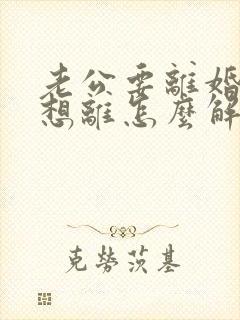 老公要離婚
想離怎麼解
克勞茨基